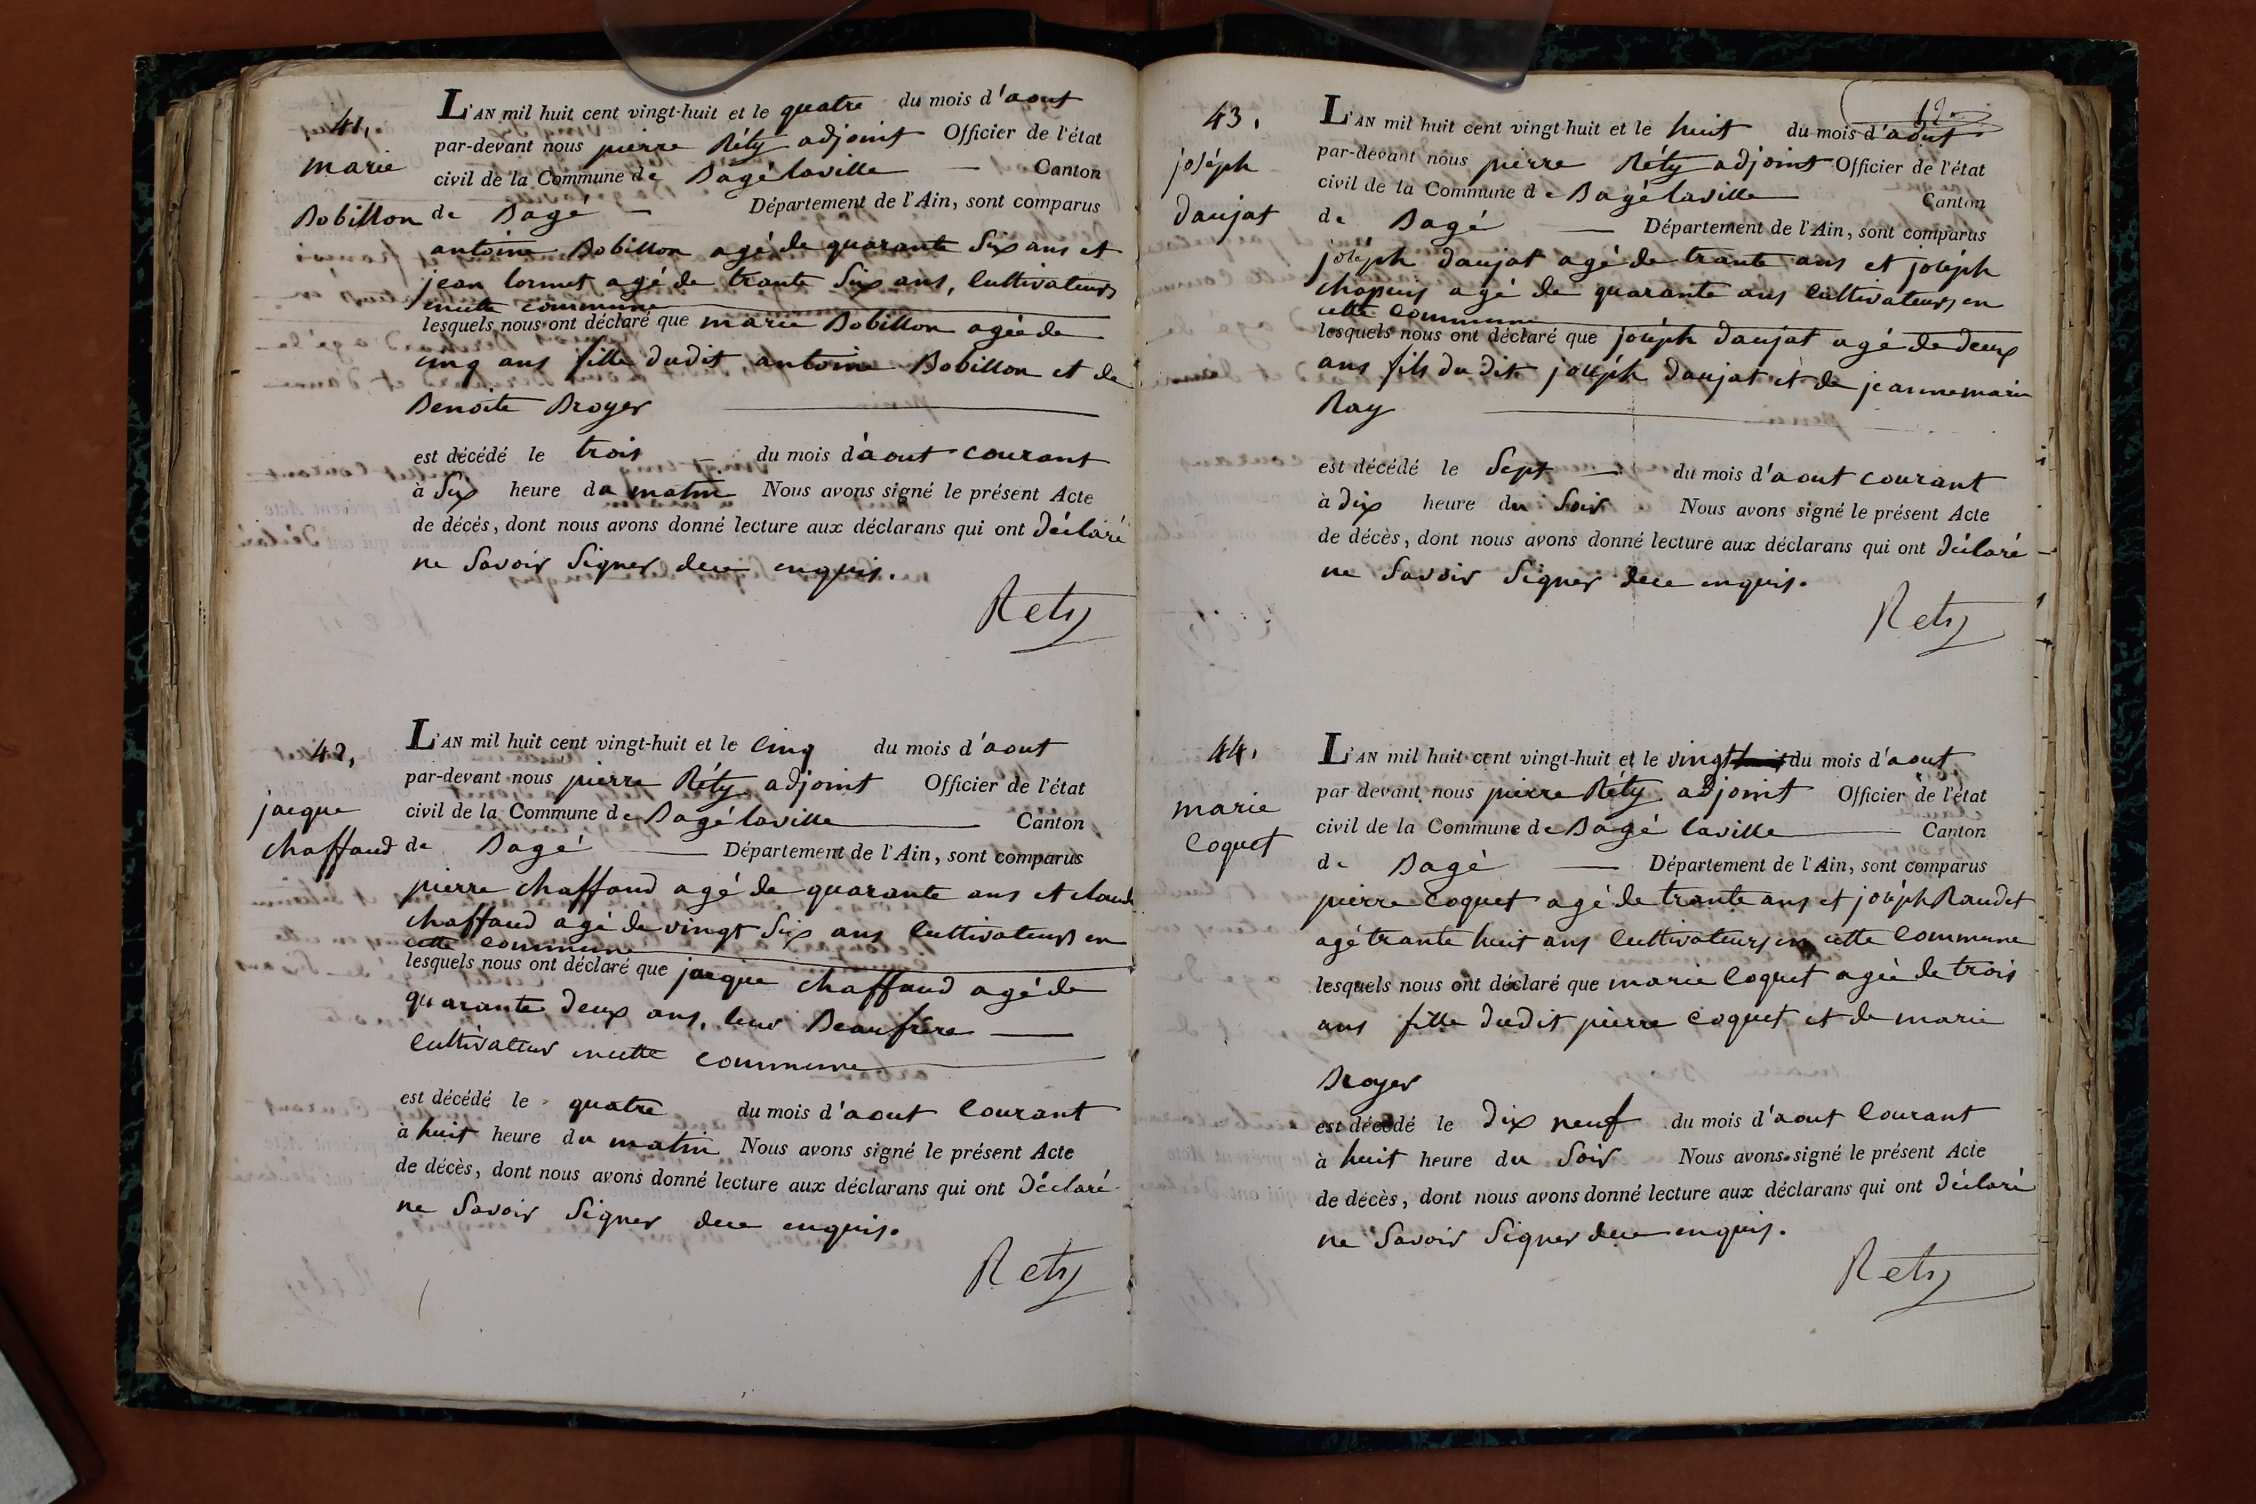 41,
marie
Bobillon
L'AN mil huit cent vingt-huit et le quatre du mois d'aout
par-devant nous pierre Réty adjoint Officier de l'état
civil de la Commune de Bagé laville — Canton
de Bagé — Département de l'Ain, sont comparus
antoine Bobillon agé de quarante Six ans et
jean lornet agé de trante Six ans, Cultivateurs
encette commune
lesquels nous ont déclaré que marie Bobillon agée de
cinq ans fille dudit antoine Bobillon et de
Benoite Broyer
est décédé le trois du mois d'aout courant
à Six heure du matin Nous avons signé le présent Acte
de décès, dont nous avons donné lecture aux déclarans qui ont déclaré
ne Savoir Signer dece enquis.
Rety
42,
jacque
chaffaud
L'AN mil huit cent vingt-huit et le Cinq du mois d'aout
par-devant nous pierre Réty adjoint Officier de l'état
civil de la Commune de Bagé laville — Canton
de Bagé — Département de l'Ain, sont comparus
pierre chaffaud agé de quarante ans et claude
chaffaud agé de vingt Six ans Cultivateurs en
cette commune
lesquels nous ont déclaré que jacque chaffaud agé de
quarante deux ans, leur Beaufrere —
Cultivateur encette commune
est décédé le quatre du mois d'aout Courant
à huit heure du matin Nous avons signé le présent Acte
de décès, dont nous avons donné lecture aux déclarans qui ont déclaré
ne Savoir Signer dece enquis.
Rety
12
43,
joséph
daujat
L'AN mil huit cent vingt-huit et le huit du mois d'aout
par-devant nous pierre Réty adjoint Officier de l'état
civil de la Commune de Bagé laville Canton
de Bagé — Département de l'Ain, sont comparus
joséph daujat agé de trante ans et joséph
chapuis agé de quarante ans Cultivateurs en
cette commune
lesquels nous ont déclaré que joséph daujat agé de deux
ans fils du dit joséph daujat et de jeanne marie
Ray
est décédé le Sept — du mois d'aout courant
à dix heure du Soir Nous avons signé le présent Acte
de décès, dont nous avons donné lecture aux déclarans qui ont déclaré
ne Savoir Signer dece enquis.
Rety
44,
marie
Coquet
L'AN mil huit cent vingt-huit et le vingt du mois d'aout
par devant nous pierre Réty adjoint Officier de l'état
civil de la Commune de Bagé laville — Canton
de Bagé — Département de l'Ain, sont comparus
pierre Coquet agé de trante ans et joséph Raudet
agé trante huit ans Cultivateurs en cette Commune
lesquels nous ont déclaré que marie Coquet agée de trois
ans fille dudit pierre Coquet et de marie
Broyer
est décédé le dix neuf du mois d'aout Courant
à huit heure du Soir Nous avons signé le présent Acte
de décès, dont nous avons donné lecture aux déclarans qui ont déclaré
ne Savoir Signer dece enquis.
Rety